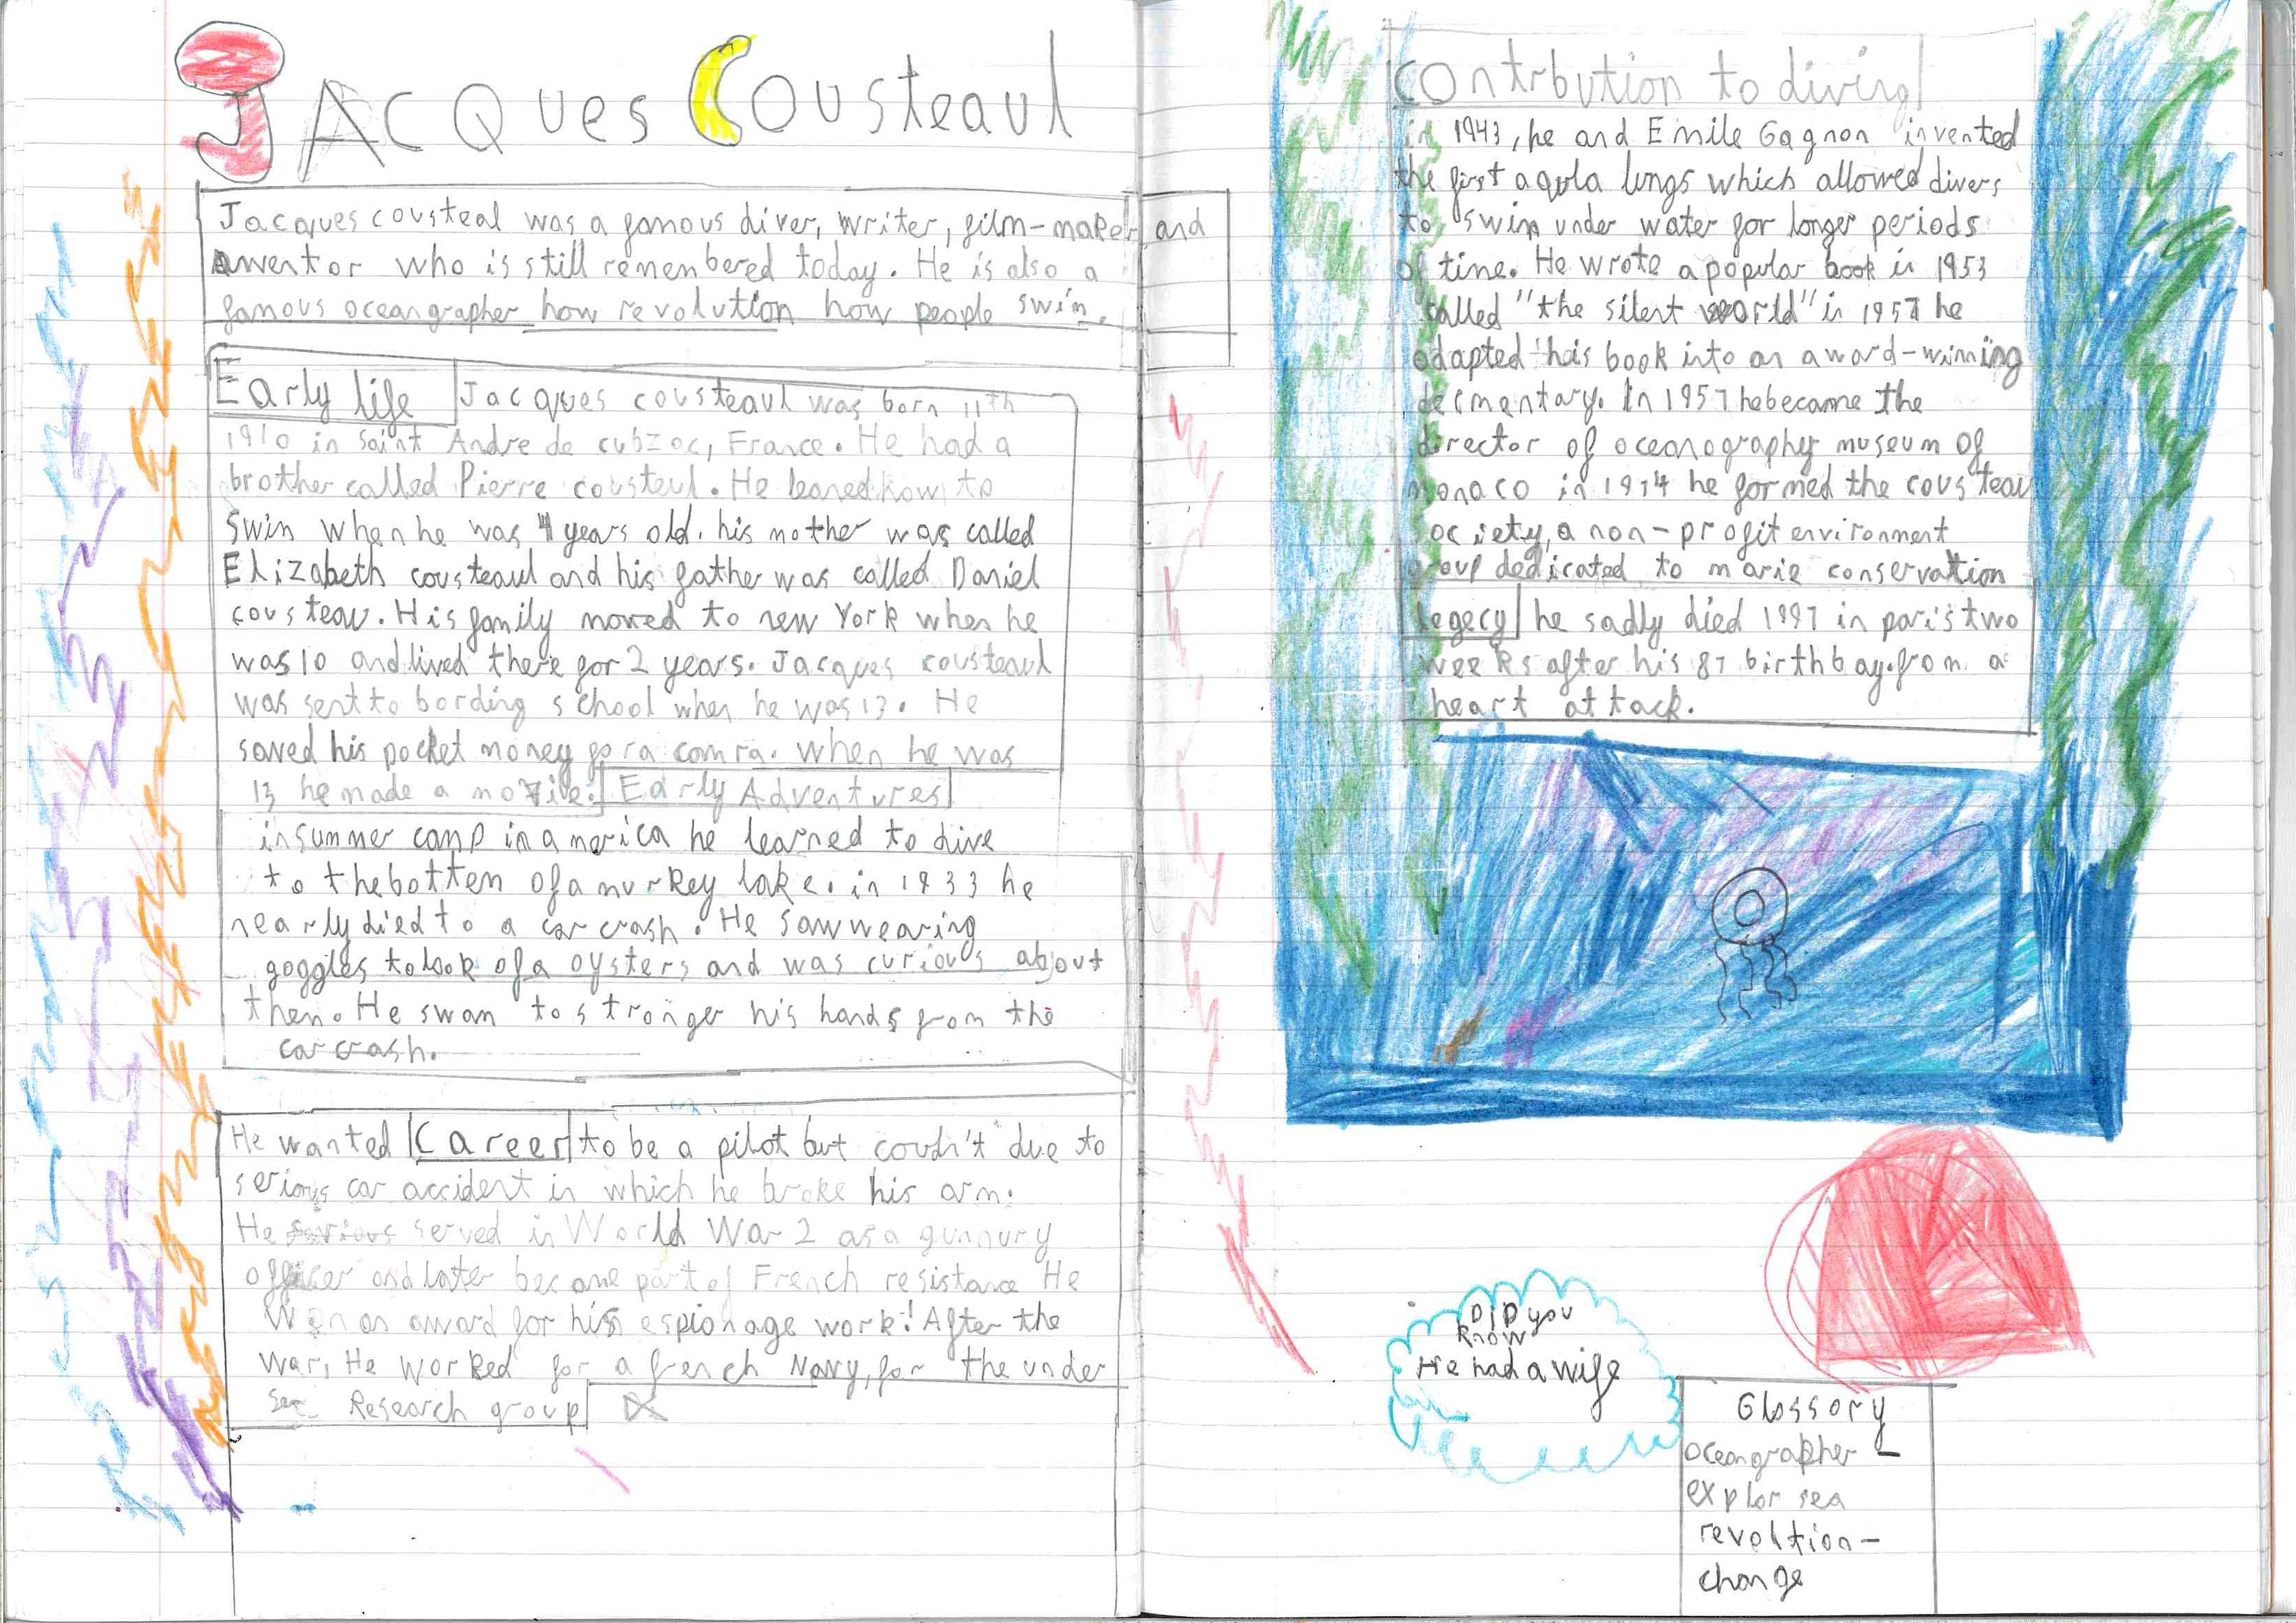 JACQues Cousteaul
Jacques cousteal was a famous diver, writer, film-maker and
inventor who is still remembered today. He is also a
famous oceangrapher how revolution how people swim.
Early life Jacques cousteaul was born 11th
1910 in saint Andre de cubzac, France. He had a
brother called Pierre cousteul. He leaned how to
swim when he was 4 years old. his mother was called
Elizabeth cousteaul and his father was called Daniel
cousteau. His family moved to new York when he
was 10 and lived there for 2 years. Jacques cousteaul
was sent to bording school when he was 13. He
saved his pocket money for a comra. when he was
13 he made a movie. Early Adventures
in summer camp in america he learned to dive
to the bottem of a murkey lake. in 1933 he
nearly died to a car crash. He saw wearing
goggles to look of a oysters and was curious about
them. He swam to stronger his hands from the
car crash.
He wanted Career to be a pilot but coudn't due to
serious car accident in which he broke his arm.
He serious served in World War 2 as a gunnury
officer and later became part of French resistance He
Won an award for his espionage work! After the
war, He worked for a french Navy, for the under
sea Research group
Contrbution to diving
in 1943, he and Emile Gagnon invented
the first aqula lungs which allowed divers
to swim under water for longer periods
of time. He wrote a popular book in 1953
called "the silent world" in 1957 he
adapted his book into an award-winning
decmentary. In 1957 he became the
director of oceanography museum of
monaco in 1974 he formed the cousteau
society, a non-profit environment
group dedicated to marie conservation
legecy he sadly died 1997 in paris two
weeks after his 87 birthbay. from a
heart attack.
DiD you
know
He had a wife
Glossory
oceangrapher -
explor sea
revoltion -
change